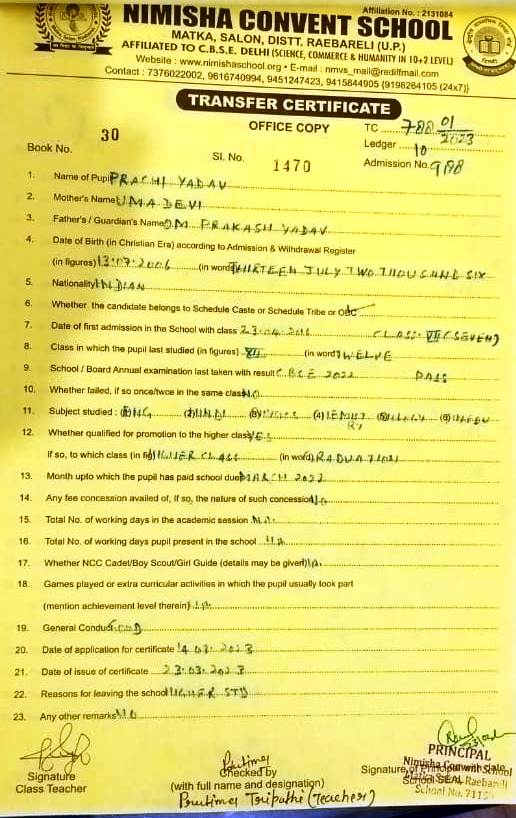 Affiliation No. : 2131084
NIMISHA CONVENT SCHOOL
MATKA, SALON, DISTT. RAEBARELI (U.P.)
AFFILIATED TO C.B.S.E. DELHI (SCIENCE, COMMERCE & HUMANITY IN 10+2 LEVEL)
Website : www.nimishaschool.org • E-mail : nmvs_mail@rediffmail.com
Contact : 7376022002, 9616740994, 9451247423, 9415844905 {9198264105 (24x7)}
TRANSFER CERTIFICATE
OFFICE COPY
TC 788 01/2023
Book No. 30
Ledger 10
Sl. No. 1470
Admission No. 988
1. Name of Pupil PRACHI YADAV
2. Mother's Name UMA DEVI
3. Father's / Guardian's Name OM PRAKASH YADAV
4. Date of Birth (in Christian Era) according to Admission & Withdrawal Register
(in figures) 13.07.2006 (in word) THIRTEEN JULY TWO THOUSAND SIX
5. Nationality INDIAN
6. Whether the candidate belongs to Schedule Caste or Schedule Tribe or OBC
7. Date of first admission in the School with class 23.04. CLASS- VII (SEVEN)
8. Class in which the pupil last studied (in figures) XII (in word) TWELVE
9. School / Board Annual examination last taken with result CBSE 2022 PASS
10. Whether failed, if so once/twce in the same class NO
11. Subject studied : (1) ENG (2) HINDI (3) (4) (5) (6)
12. Whether qualified for promotion to the higher class YES
if so, to which class (in fig) HIGHER CLASS (in word) GRADUATION
13. Month upto which the pupil has paid school due MARCH 2022
14. Any fee concession availed of, if so, the nature of such concession NO
15. Total No. of working days in the academic session N.A.
16. Total No. of working days pupil present in the school
17. Whether NCC Cadet/Boy Scout/Girl Guide (details may be given)
18. Games played or extra curricular activities in which the pupil usually took part
(mention achievement level therein)
19. General Conduct GOOD
20. Date of application for certificate 14 03. 2023
21. Date of issue of certificate 23.03.2023
22. Reasons for leaving the school HIGHER STD
23. Any other remarks NO
PRINCIPAL
Nimisha Convent School
Signature Checked by Signature of Principal with date
Class Teacher (with full name and designation) School SEAL Raebareli
Tripathi (Teacher) School No. 7115